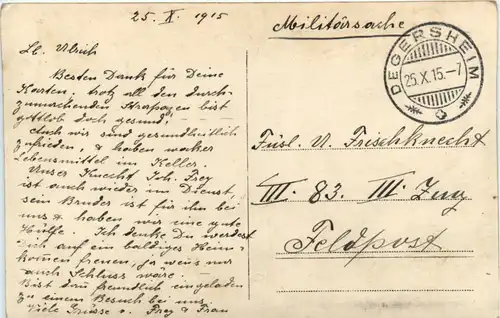 25. X. 1915
Lb. Ulrich
Besten Dank für Deine
Karten; trotz all den durch-
zumachenden Strapazen bist
gottlob doch gesund,
Auch wir sind gesundheitlich
zufrieden, & haben
Lebensmittel im Keller.
Unser Knecht Joh. Frey
ist auch wieder im Dienst,
sein Bruder ist für ihn bei
uns & haben wir eine gute
Hülfe. Ich denke Du werdest
Dich auf ein baldiges Heim-
kommen freuen, ja wenns nur
auch Schluss wäre.
Bist drum freundlich eingeladen
zu einem Besuch bei uns.
Viele Grüsse v. Frey & Frau
Militärsache
DEGERSHEIM
25.X.15.–7
Füsl. U. Frischknecht
III. 83. III. Zug
Feldpost